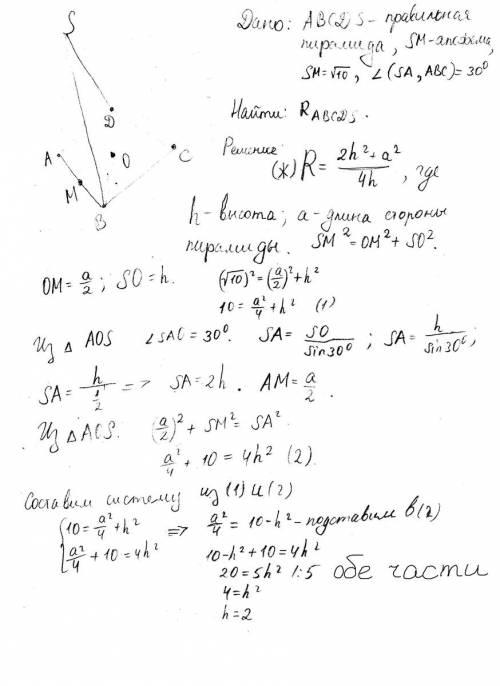 S
D
A
O
C
M
B
Дано: ABCDS - правильная
пирамида, SM - апофема,
SM = √10, ∠(SA, ABC) = 30⁰
Найти: R ABCDS.
Решение:
(Ж) R = (2h² + a²)/(4h), где
h - высота; a - длина стороны
пирамиды. SM² = OM² + SO².
OM = a/2; SO = h. (√10)² = (a/2)² + h²
10 = a²/4 + h² (1)
Из △ AOS ∠SAO = 30⁰. SA = SO/sin30⁰; SA = h/sin30⁰;
SA = h/(1/2) => SA = 2h. AM = a/2.
Из △ACS. (a/2)² + SM² = SA²
a²/4 + 10 = 4h² (2).
Составим систему из (1) и (2)
{10 = a²/4 + h² => a²/4 = 10 - h² - подставим в (2)
{a²/4 + 10 = 4h² 10 - h² + 10 = 4h²
20 = 5h² |:5 обе части
4 = h²
h = 2